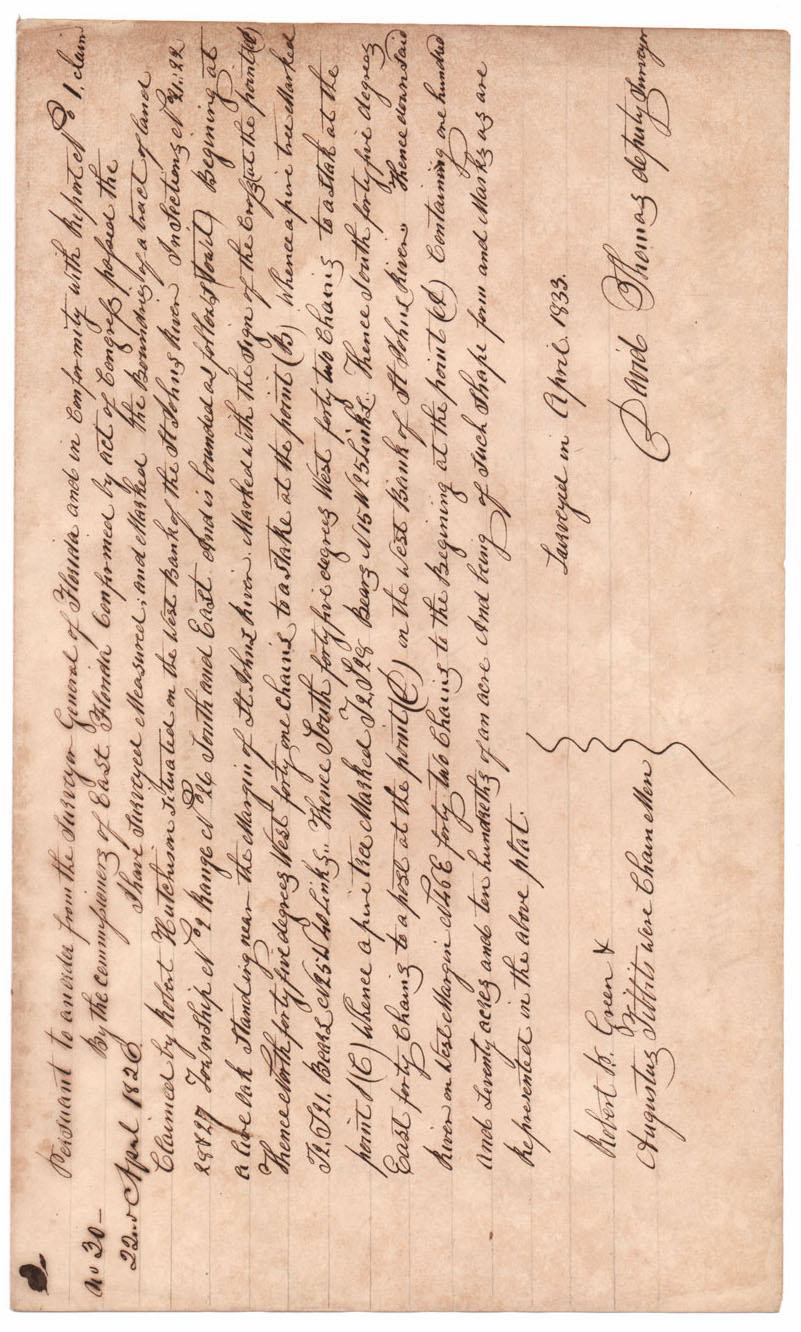 Persuant to an order from the Surveyor General of Florida and in Conformity with Report No 1, claim
No 30 — By the commissioners of East Florida Confirmed by act of Congress passed the
22nd April 1826 I have Surveyed Measured, and Marked the Boundries of a tract of land
Claimed by Robert Hutchison situated on the West Bank of the St Johns River In Sections No 21. 22
28 & 27 Township No 9 Range No 26 South and East And is bounded as follows (Towit) Begining at
a live oak Standing near the Margin of St. Johns River. Marked with the Sign of the Cross at the point (A)
Thence North forty five degrees West forty one Chains to a stake at the point (B) Whence a pine tree Marked
Bears N 25 W 40 Links.. Thence South forty five degrees West forty two Chains to a stak at the
point (C) Whence a pine tree Marked Bears N 15 W 25 Links. Thence South forty five degrees
East forty Chains to a post at the point on the West Bank of St Johns River Thence down said
River on West Margin N 46 E forty two Chains to the Begining at the point (A) Containing one hundred
and Seventy acres and ten hundreths of an acre And being of Such Shape form and Marks as are
Represented in the above plat.
Surveyed in April. 1833.
Robert B. Green &
Augustus were Chain Men
David Thomas deputy Surveyr